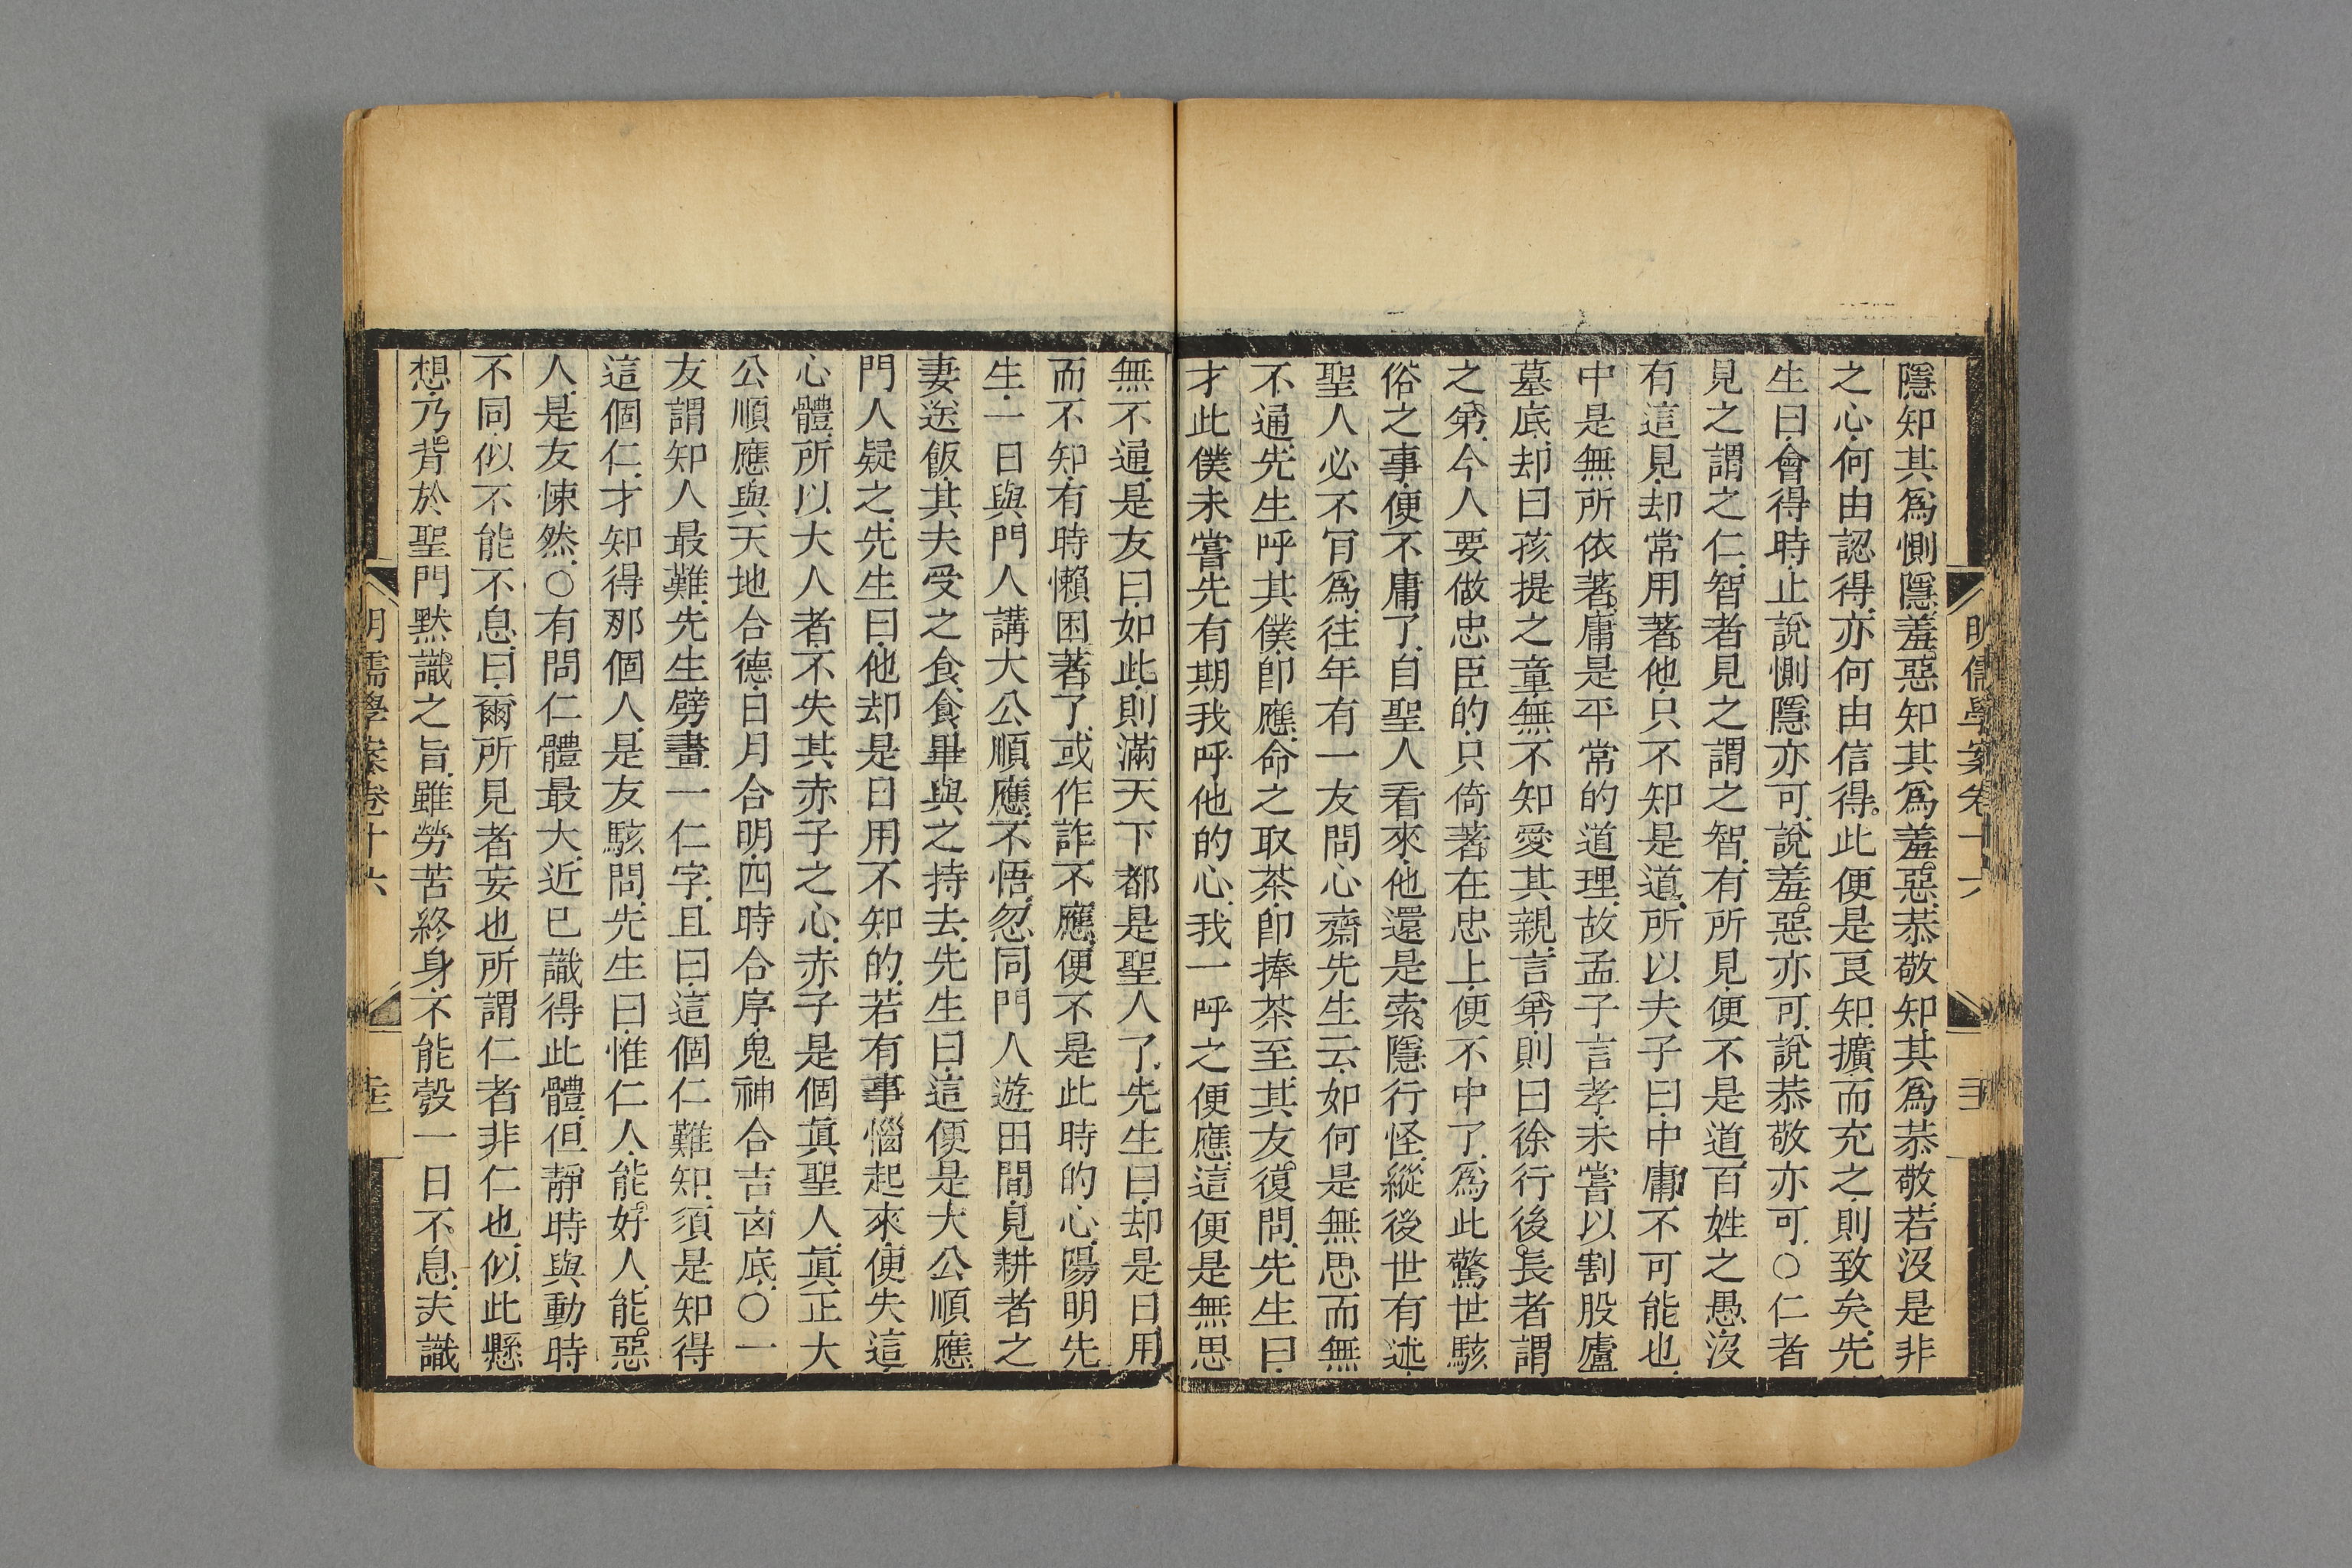 明儒學案卷十六
隱知其爲惻隱羞惡知其爲羞惡恭敬知其爲恭敬若沒是非
之心何由認得亦何由信得此便是良知擴而充之則致矣先
生曰會得時止說惻隱亦可說羞惡亦可說恭敬亦可○仁者
見之謂之仁智者見之謂之智有所見便不是道百姓之愚沒
有這見却常用著他只不知是道所以夫子曰中庸不可能也
中是無所依著庸是平常的道理故孟子言孝未嘗以割股廬
墓底却曰孩提之童無不知愛其親言弟則曰徐行後長者謂
之弟今人要做忠臣的只倚著在忠上便不中了爲此驚世駭
俗之事便不庸了自聖人看來他還是索隱行怪縱後世有述
聖人必不肎爲往年有一友問心齋先生云如何是無思而無
不通先生呼其僕卽應命之取茶卽捧茶至其友復問先生曰
才此僕未嘗先有期我呼他的心我一呼之便應這便是無思
無不通是友曰如此則滿天下都是聖人了先生曰却是日用
而不知有時懶困著了或作詐不應便不是此時的心陽明先
生一日與門人講大公順應不悟忽同門人遊田間見耕者之
妻送飯其夫受之食食畢與之持去先生曰這便是大公順應
門人疑之先生曰他却是日用不知的若有事惱起來便失這
心體所以大人者不失其赤子之心赤子是個眞聖人眞正大
公順應與天地合德日月合明四時合序鬼神合吉凶底○一
友謂知人最難先生劈畫一仁字且曰這個仁難知須是知得
這個仁才知得那個人是友駭問先生曰惟仁人能好人能惡
人是友悚然○有問仁體最大近已識得此體但靜時與動時
不同似不能不息曰爾所見者妄也所謂仁者非仁也似此懸
想乃背於聖門默識之旨雖勞苦終身不能彀一日不息夫識
明儒學案卷十六